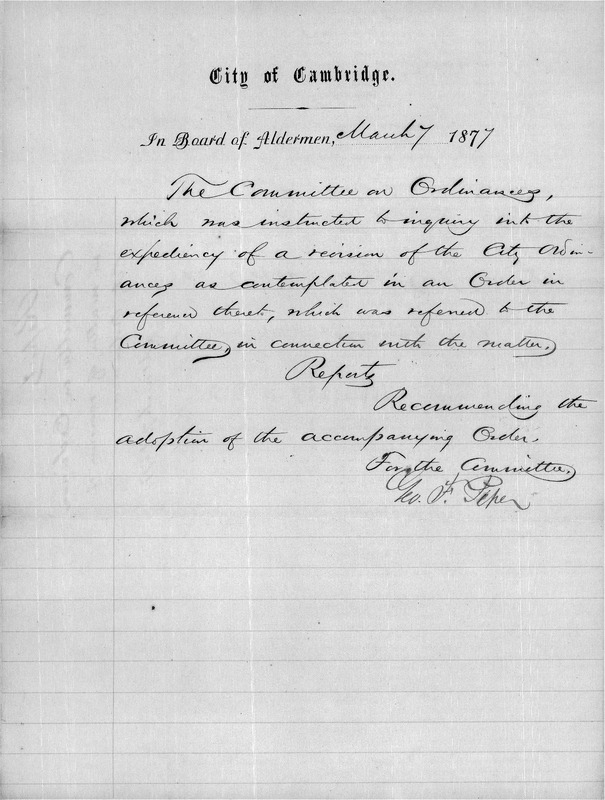 City of Cambridge.
In Board of Aldermen, March 7 1877
The Committee on Ordinances,
which was instructed to inquiry into the
expediency of a revision of the City Ordin-
ances as contemplated in an Order in
reference thereto, which was referred to the
Committee, in connection with the matter,
Reports
Recommending the
adoption of the accompanying Order.
For the Committee,
Geo. F. Piper